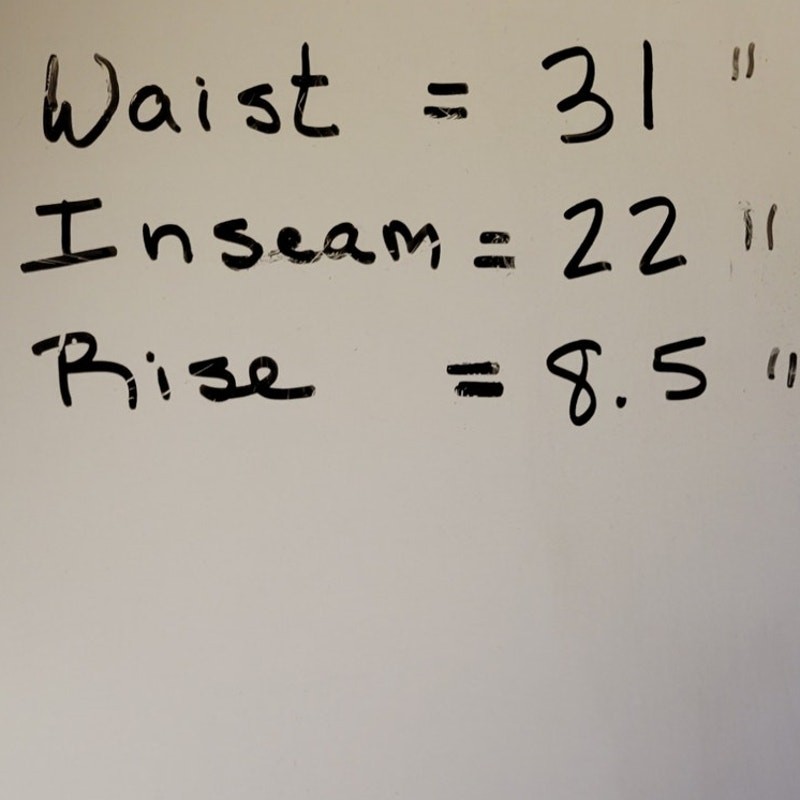 Waist = 31 "
Inseam = 22 "
Rise = 8.5 "